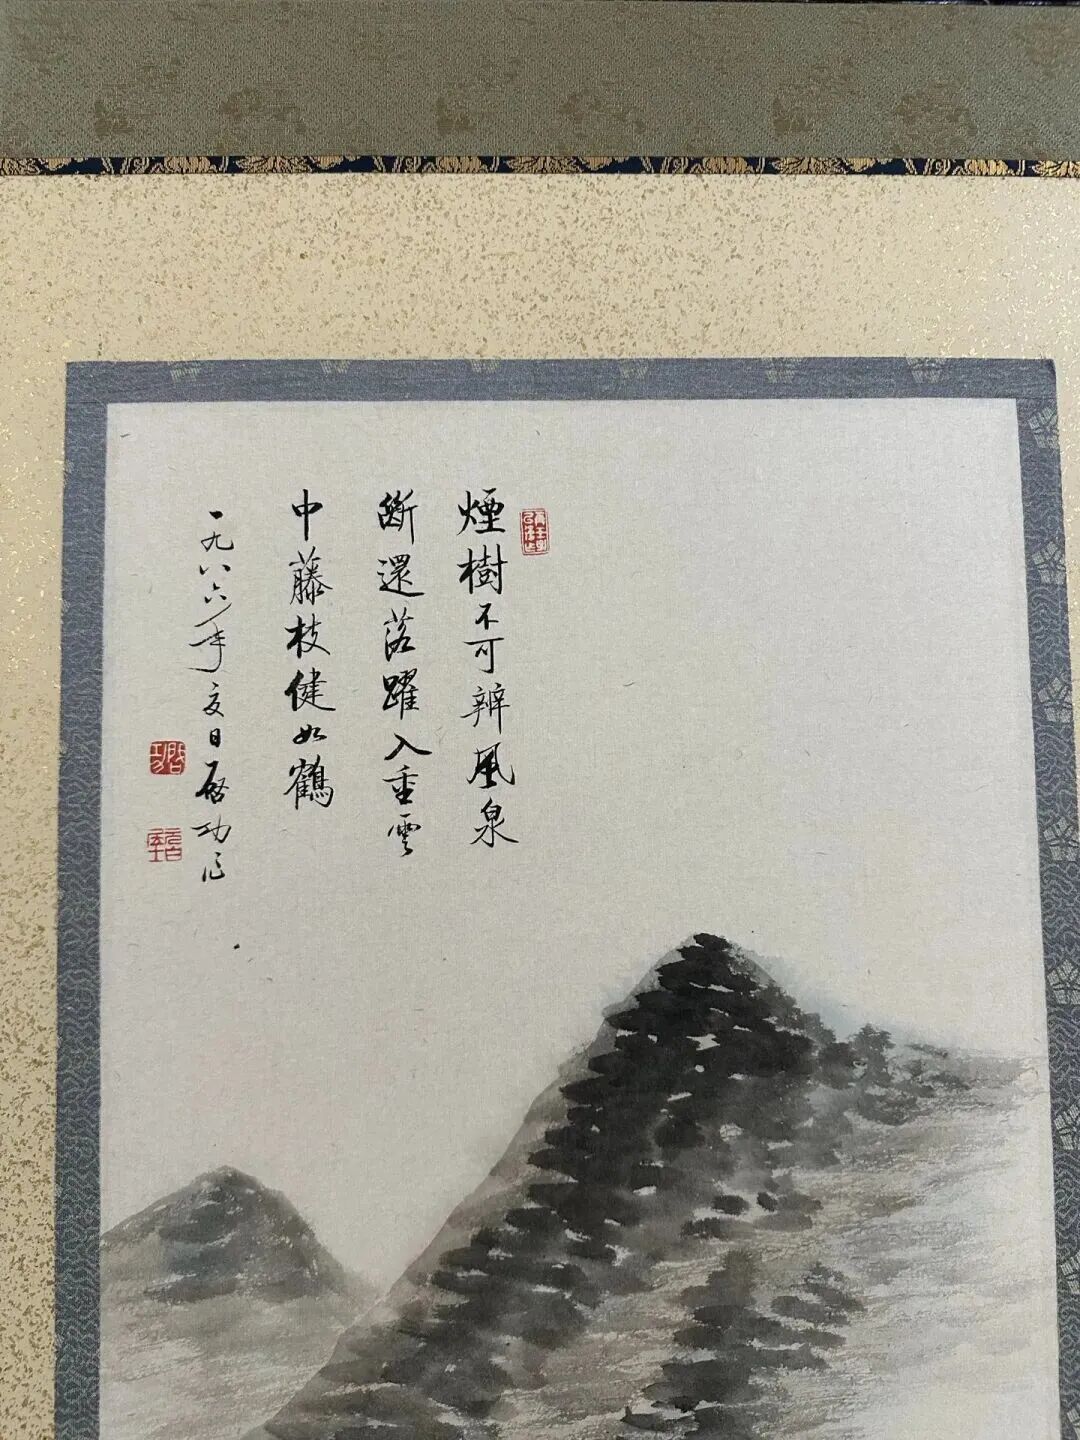 煙樹不可辨風泉
斷還落躍入重雲
中藤枝健如鶴
一九八六年夏日啓功作
啓功
元白